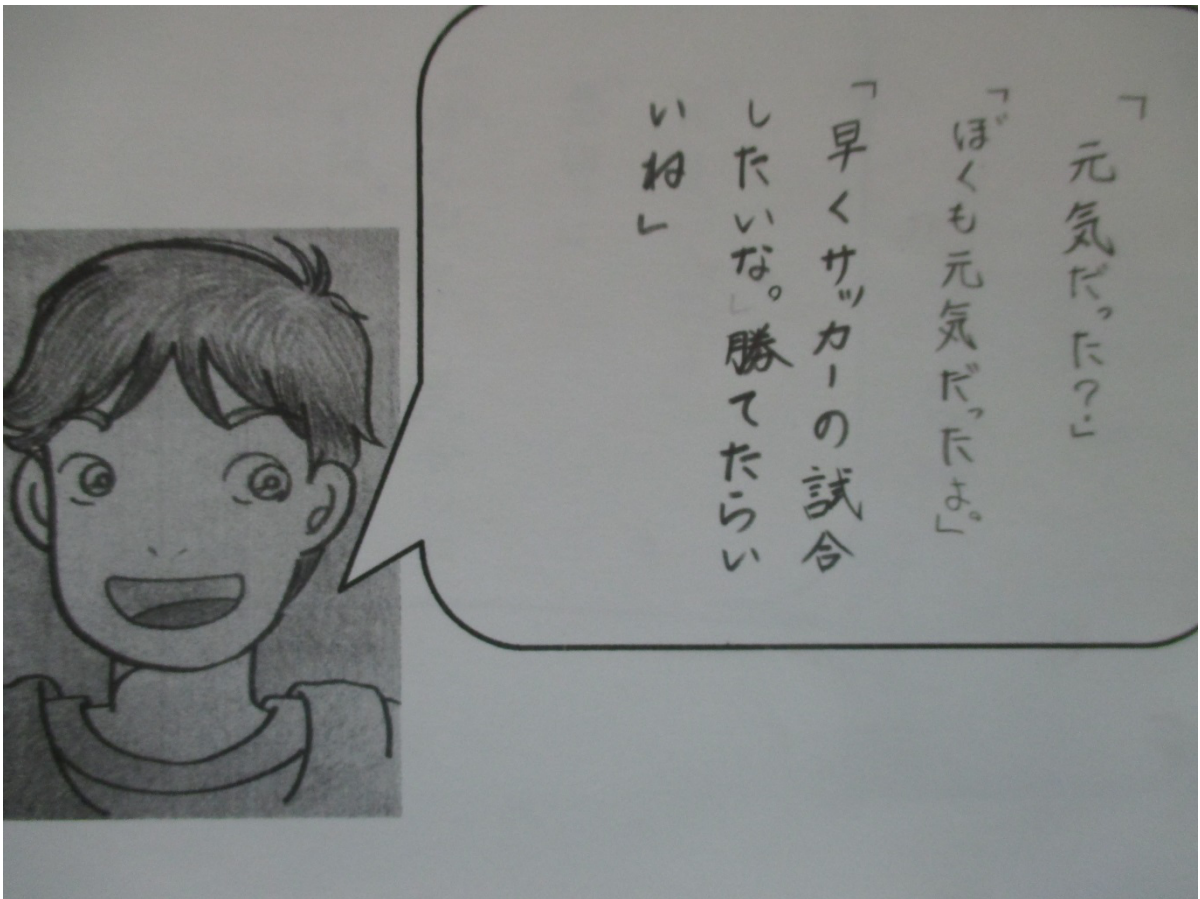 「元気だった?」
「ぼくも元気だったよ。」
「早くサッカーの試合
したいな。勝てたらい
いね」